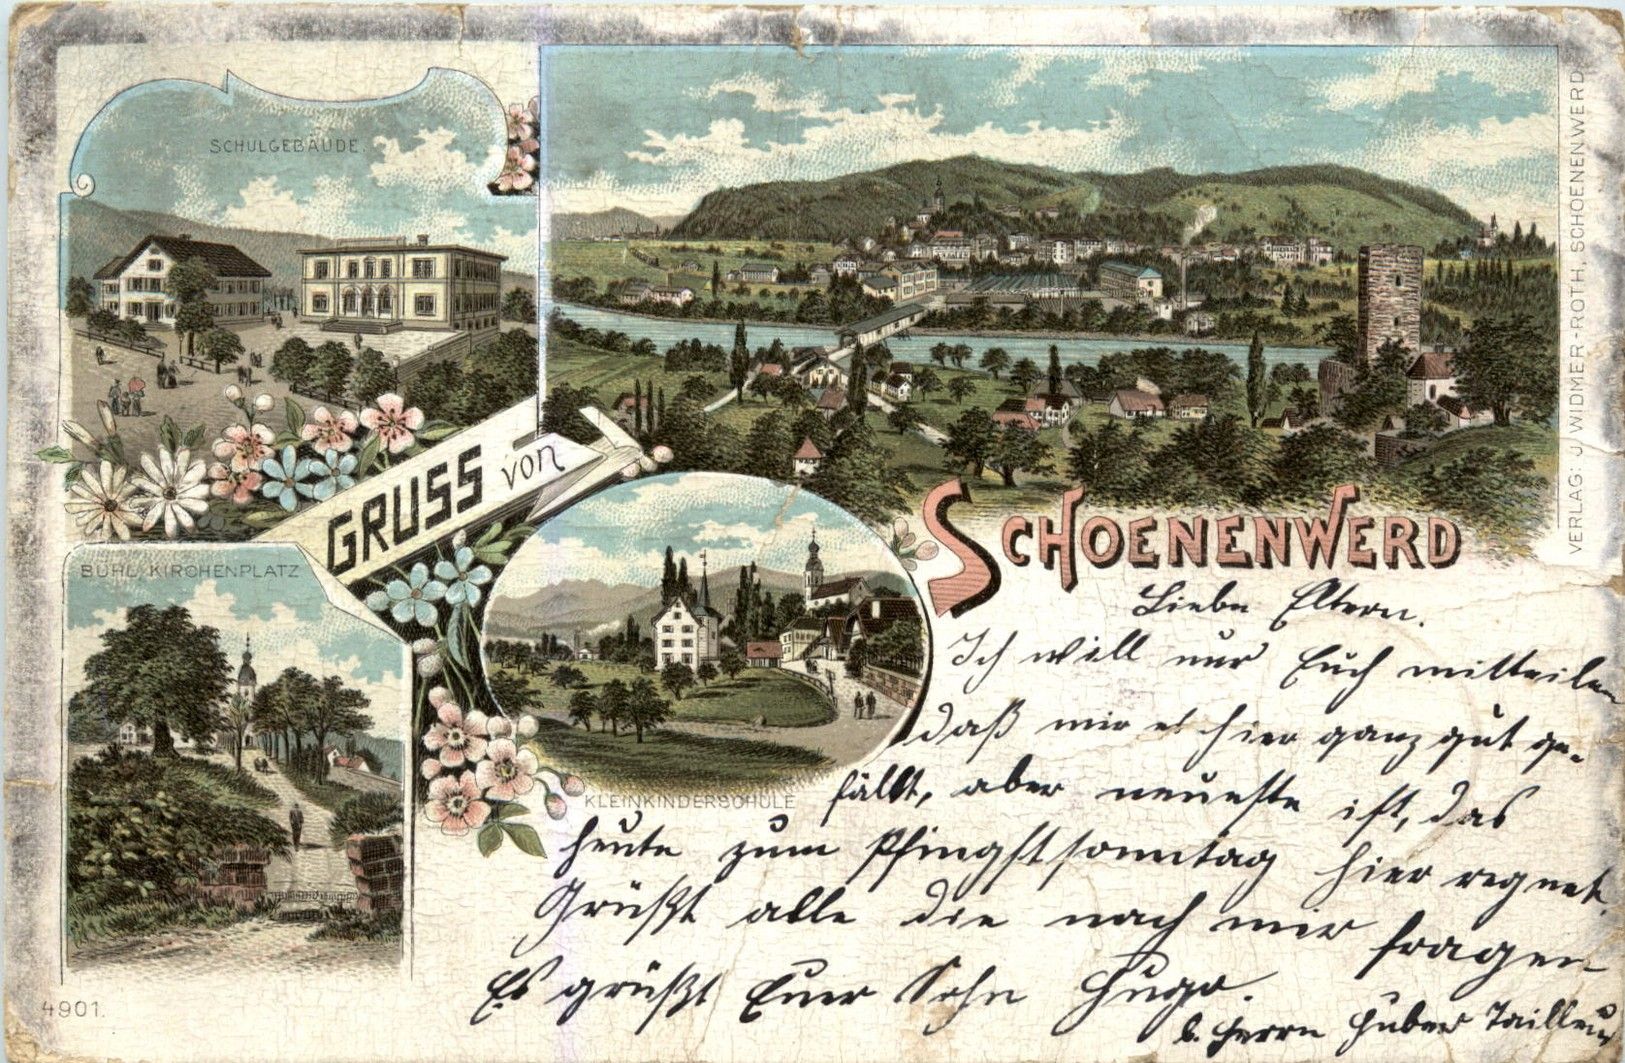 SCHULGEBÄUDE.
GRUSS von
SCHOENENWERD
BÜHL KIRCHENPLATZ
KLEINKINDERSCHULE
VERLAG: J. WIDMER-ROTH, SCHOENENWERD
Liebe Eltern.
Ich will nur Euch mitteilen
daß mir es hier ganz gut ge-
fällt, aber neueste ist, das
heute zum Pfingstsonntag hier regnet.
Grüßt alle die nach mir fragen
Es grüßt Euer Sohn Hugo.
b. Herrn Huber Tailleur
4901.